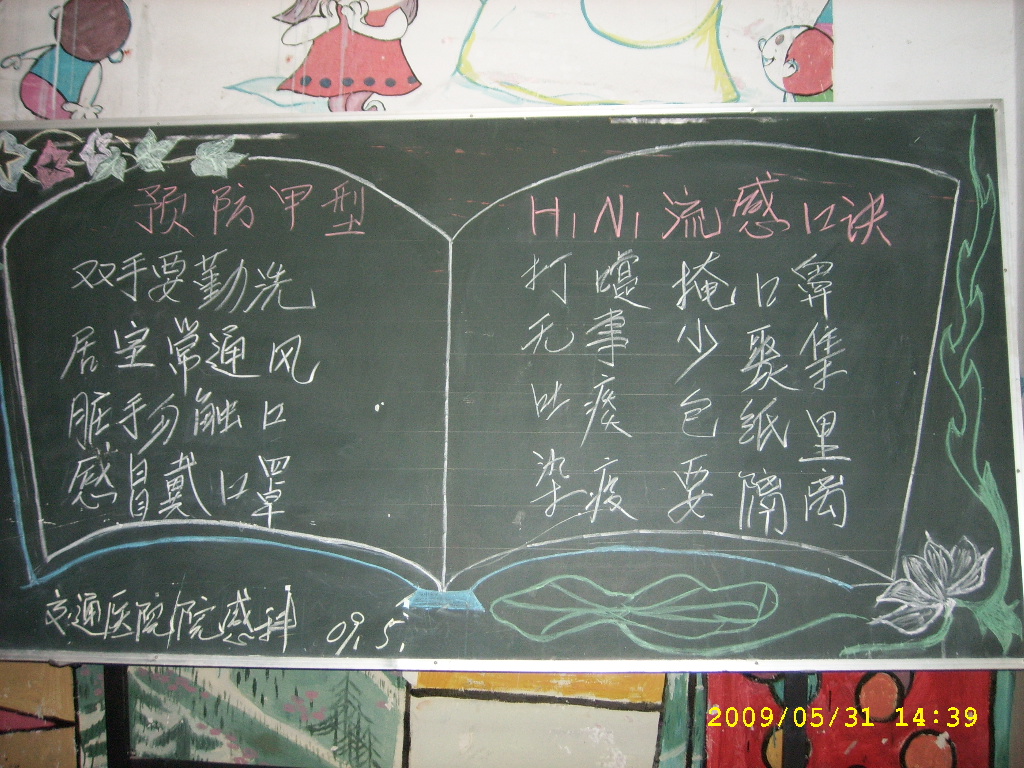 预防甲型
H1N1流感口诀
双手要勤洗
居室常通风
脏手勿触口
感冒戴口罩
打嚏掩口鼻
无事少聚集
吐痰包纸里
染疫要隔离
交通医院院感科 09.5.
2009/05/31 14:39